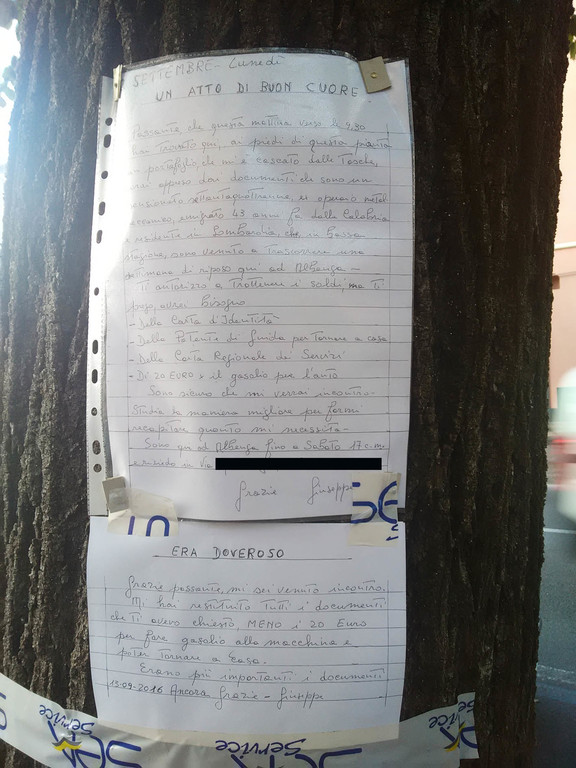 SETTEMBRE - Lunedì
UN ATTO DI BUON CUORE
Passante che questa mattina verso le 9,30
hai trovato qui, ai piedi di questa pianta
portafoglio che mi è cascato dalla Tasca,
dai documenti che sono un
pensionato settantaquattrenne, ex operaio metal
meccanico, emigrato 43 anni fa dalla Calabria
e residente in Lombardia, che in bassa
stagione, sono venuto a Trascorrere una
settimana di riposo qui ad Albenga -
Ti autorizzo a Trattenere i soldi, ma Ti
prego, avrei bisogno
- Della Carta d'Identità
- Della Patente di Guida per Tornare a casa
- Della Carta Regionale dei Servizi
- Di 20 EURO x il gasolio per l'auto
Sono sicuro che mi verrai incontro.
Studia la maniera migliore per farmi
recapitare quanto mi necessita -
Sono qui ad Albenga fino a Sabato 17 c.m.
e risiedo in Via
Grazie Giuseppe
ERA DOVEROSO
Grazie passante, mi sei venuto incontro.
Mi hai restituito Tutti i documenti
che Ti avevo chiesto, MENO i 20 Euro
per fare gasolio alla macchina e
poter Tornare a Casa.
Erano più importanti i documenti
13-09-2016 Ancora Grazie - Giuseppe
Service
Service